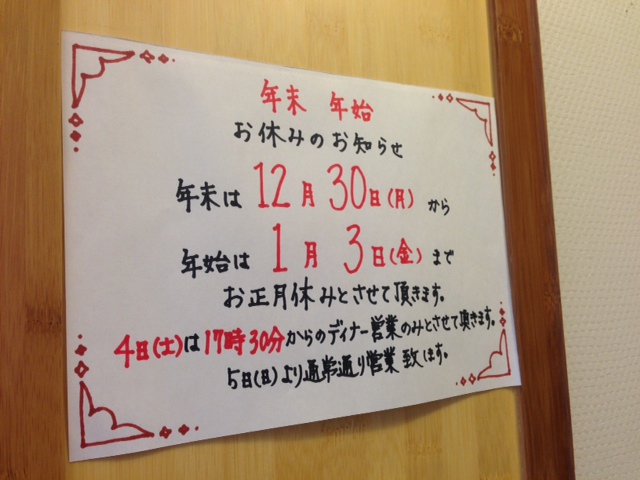 年末 年始
お休みのお知らせ
年末は 12月 30日(月) から
年始は 1月 3日(金) まで
お正月休みとさせて頂きます。
4日(土)は17時30分からのディナー営業のみとさせて頂きます。
5日(日)より通常通り営業致します。